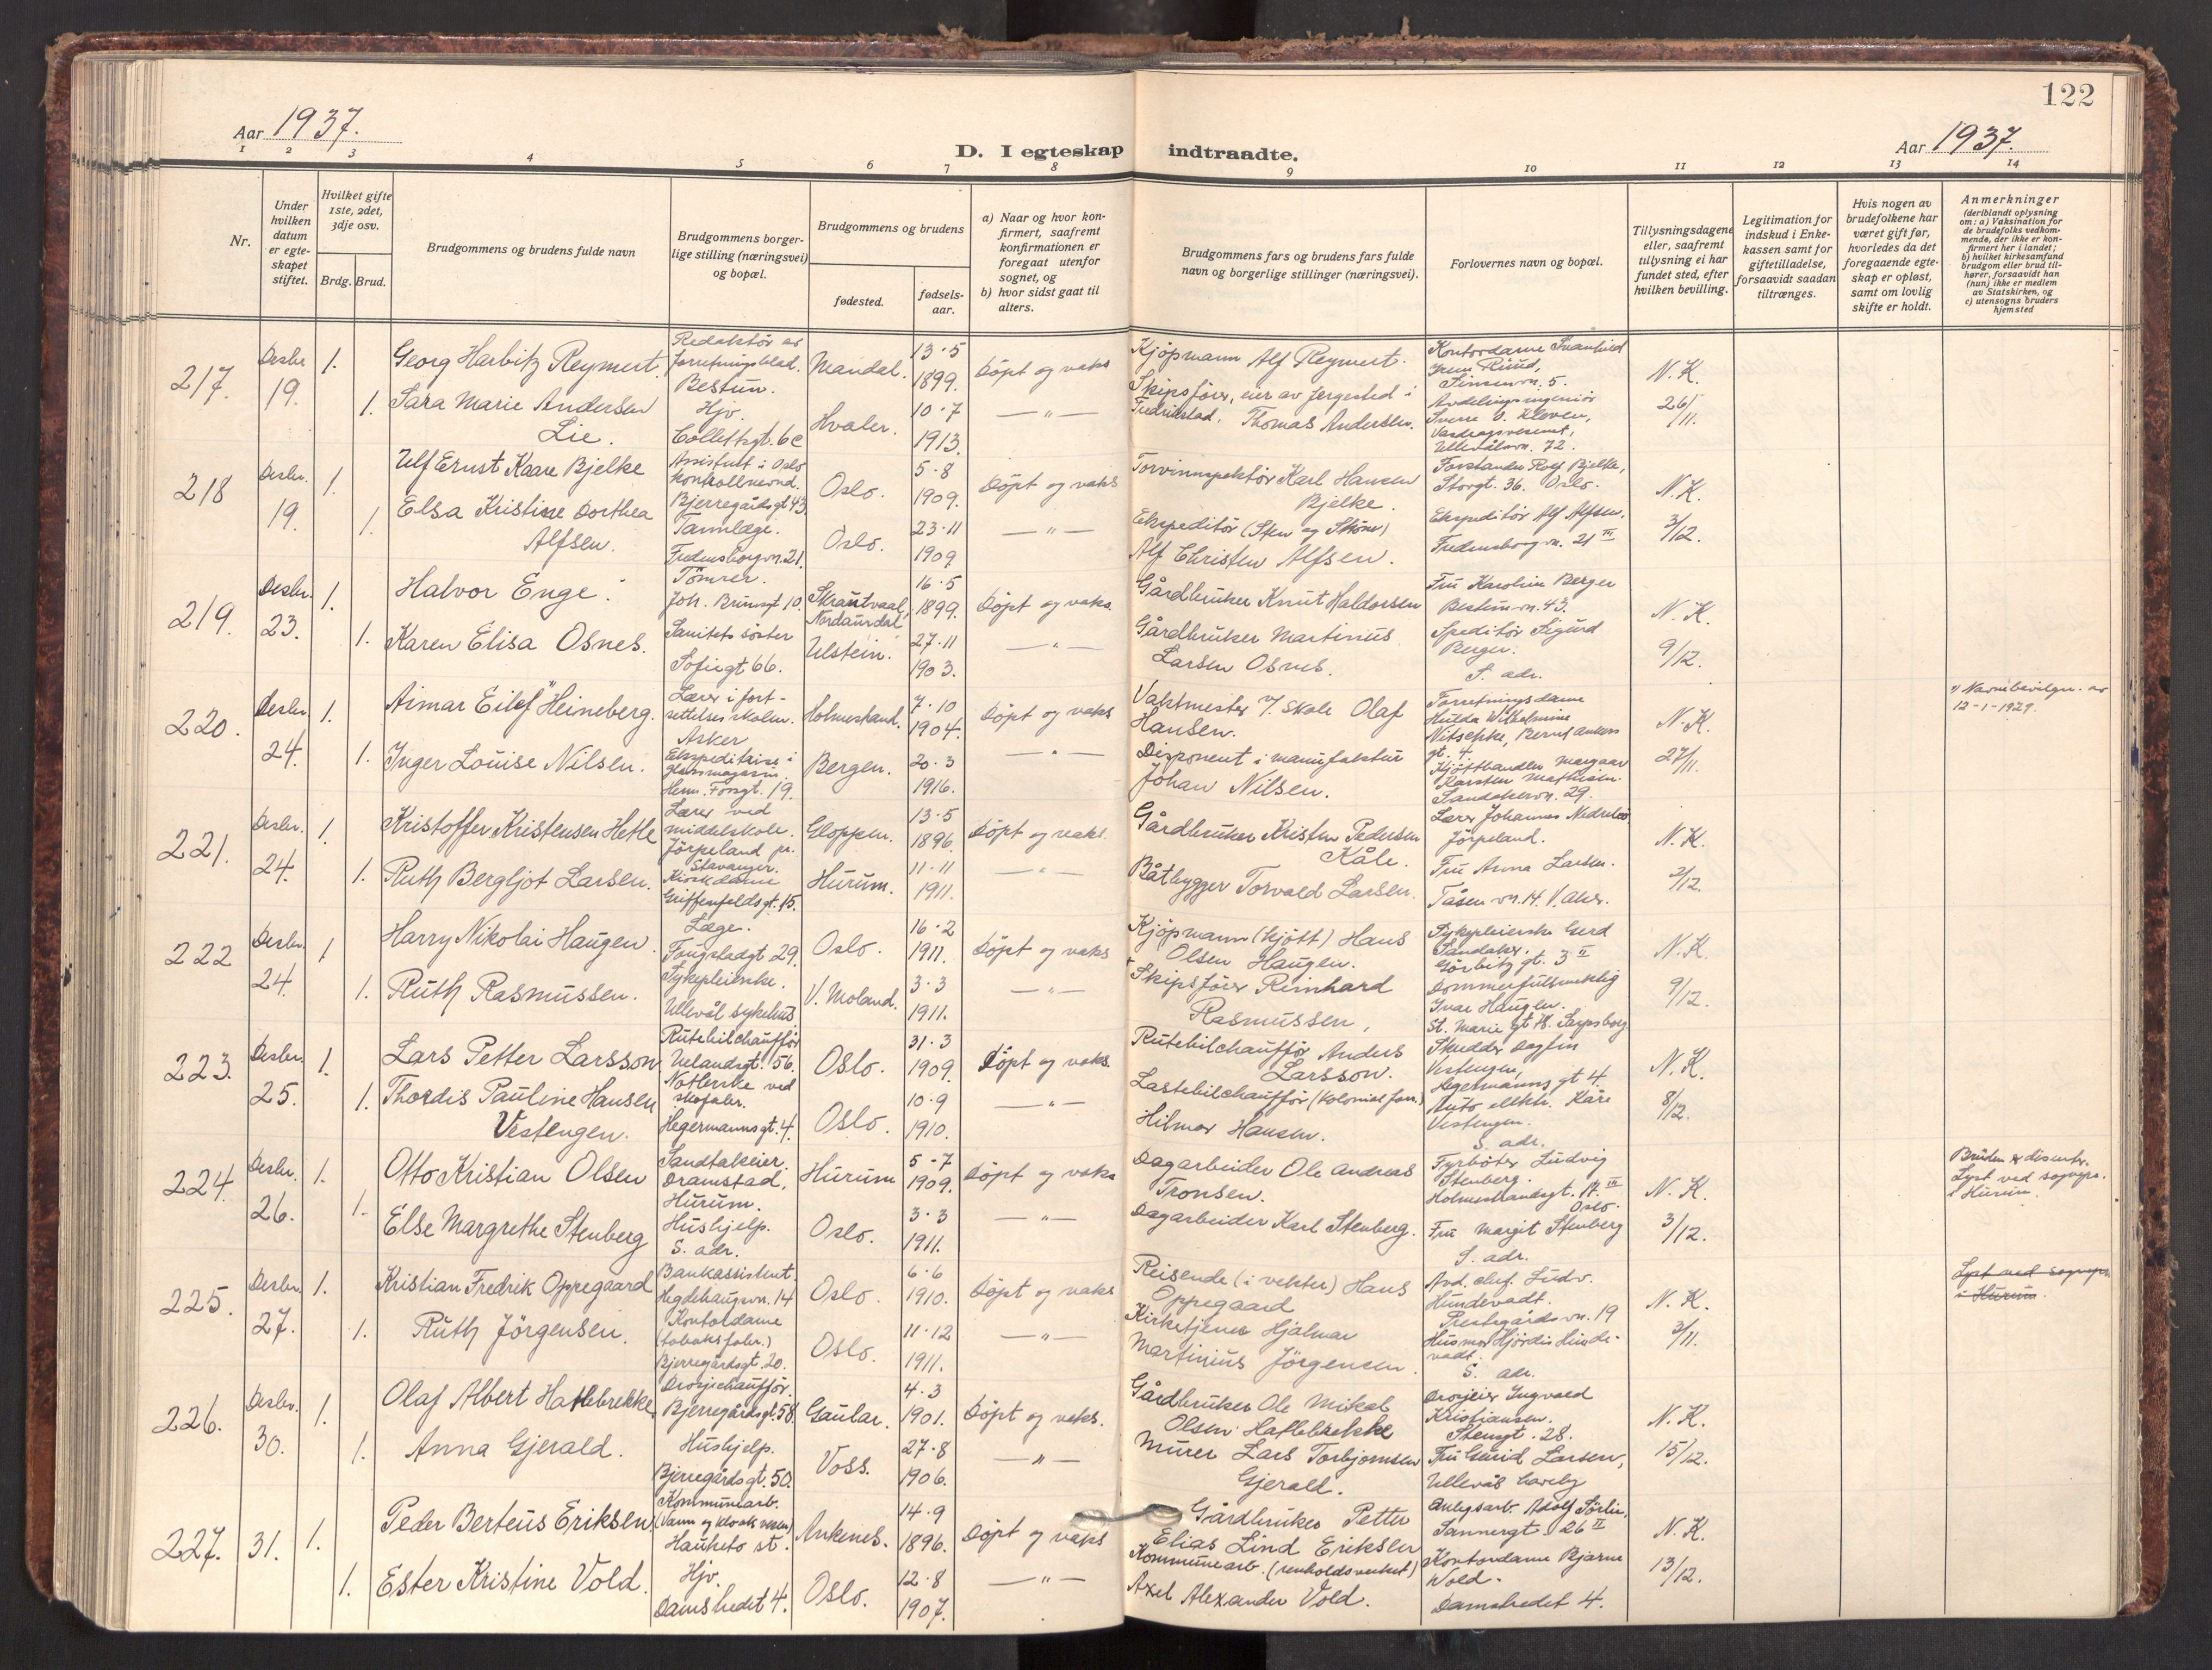 122
Aar 1937.
D. I egteskap indtraadte.
Aar 1937.
1 2 3 4 5 6 7 8 9 10 11 12 13 14
Nr.
Under hvilken datum er egteskapet stiftet.
Hvilket gifte 1ste, 2det, 3dje osv.
Brdg. Brud.
Brudgommens og brudens fulde navn
Brudgommens borgerlige stilling (næringsvei) og bopæl.
Brudgommens og brudens
fødested.
fødselsaar.
a) Naar og hvor konfirmert, saafremt konfirmationen er foregaat utenfor sognet, og
b) hvor sidst gaat til alters.
Brudgommens fars og brudens fars fulde navn og borgerlige stillinger (næringsvei).
Forlovernes navn og bopæl.
Tillysningsdagene eller, saafremt tillysning ei har fundet sted, efter hvilken bevilling.
Legitimation for indskud i Enkekassen samt for giftetilladelse, forsaavidt saadan tiltrænges.
Hvis nogen av brudefolkene har været gift før, hvorledes da det foregaaende egteskap er opløst, samt om lovlig skifte er holdt.
Anmerkninger
(deriblandt oplysning om: a) Vaksination for de brudefolks vedkommende, der ikke er konfirmert her i landet; b) hvilket kirkesamfund brudgom eller brud tilhører, forsaavidt han (hun) ikke er medlem av Statskirken, og c) utensogns bruders hjemsted
217. Desbr. 19. 1.
Georg Harbitz Reymert.
Redaktør av forretningsblad. Bestun.
Mandal. 13.5 1899.
Döpt og vaks
Kjöpmann Alf Reymert.
Kontordame
Sinsenvn. 5.
N. K. 26/11.
1. Sara Marie Andersen Lie.
Hjv. Collettsgt. 6c
Hvaler. 10.7 1913.
— " —
Skipsförer, eier av fergested i Fredrikstad, Thomas Andersen.
Avdelingsingeniör Sverre O. Kleven,
Vasdragsvesenet, Ullevålsvn. 72.
218 Desbr. 19. 1.
Ulf Ernst Kaare Bjelke
Assistent i Oslo kontrollnevnd. Bjerregårdsgt 43
Oslo. 5.8 1909.
Döpt og vaks
Torvinnspektör Karl Hansen Bjelke.
Forstander Rolf Bjelke, Storgt. 36. Oslo.
N. K. 3/12.
1. Elsa Kristine Dorthea Alfsen.
Tannlege. Fredensborgvn. 21.
Oslo. 23.11 1909
— " —
Ekspeditör (Sten og Ström) Alf Christen Alfsen.
Ekspeditör Alf Alfsen. Fredensborgvn. 21 III
219. Desbr. 23. 1.
Halvor Enge.
Tömrer. Joh. Brunsgt 10.
Skrautvaal, Nordaurdal 16.5 1899.
Döpt og vaks.
Gårdbruker Knut Haldorsen
Fru Karoline Berger Bestumvn. 43.
N. K. 9/12.
1. Karen Elisa Osnes.
Sanitetssöster Sofiegt 66.
Ulstein. 27.11 1903.
— " —
Gårdbruker Martinus Larsen Osnes.
Speditör Sigurd Berger. S. adr.
220. Desbr. 24. 1.
Aimar Eilef " Heineberg.
Lærer i fortsettelsesskolen. Asker
Holmestrand. 7.10 1904.
Döpt og vaks
Vaktmester v. skole Olaf Hansen.
Forretningsdame Hulda Wilhelmine Nitschke, Bernt Ankers gt. 4.
N. K. 27/11.
") Navnebevilgn. av 12-1-1929.
1. Inger Louise Nilsen.
Ekspeditrise i glassmagasin. Henr. Ibsgt. 19.
Bergen. 20.3 1916.
— " —
Disponent i manufaktur Johan Nilsen.
Kjötthandler
Karsten Mathisen. Sandakervn. 29.
221. Desbr. 24. 1.
Kristoffer Kristensen Hetle
Lærer ved middelskole. Jörpeland pr. Stavanger.
Gloppen. 13.5 1896.
Döpt og vaks.
Gårdbruker Kristen Pedersen Kåle.
Lærer Johannes Nedrebö Jörpeland.
N. K. 2/12.
1. Ruth Bergljot Larsen.
Kioskdame Griffenfeldsgt. 15.
Hurum. 11.11 1911.
— " —
Båtbygger Torvald Larsen.
Fru Anna Larsen. Tåsen vn. 14. V. Aker.
222 Desbr. 24. 1
Harry Nikolai Haugen.
Læge. Fougstadgt 29.
Oslo. 16.2 1911.
Döpt og vaks
Kjöpmann (kjött) Hans Olsen Haugen.
Sykepleierske Gerd Sandaker. Görbitzgt. 3 II
N. K. 9/12.
1. Ruth Rasmussen.
Sykepleierske. Ullevål sykehus
V. Moland. 3.3 1911.
— " —
Skipsförer Reinhard Rasmussen,
Dommerfullmektig Ivar Haugen. St. Marie gt Sarpsborg
223. Desbr. 25. 1.
Lars Petter Larsson
Rutebilchauffør Uelandsgt. 56.
Oslo. 31.3 1909.
Döpt og vaks.
Rutebilchaufför Anders Larsson.
Skredder Dagfin Vestengen, Hegermannsgt 4.
N. K. 8/12.
1. Thordis Pauline Hansen Vestengen.
Nåtlerske ved skofabr. Hegermannsgt. 4.
Oslo. 10.9 1910.
— " —
Lastebilchaufför (kolonial forr.) Hilmar Hansen.
Auto elektr. Kåre Vestengen. S. adr.
224. Desbr. 26. 1.
Otto Kristian Olsen
Sandtakeier. Dramstad, Hurum.
Hurum 5-7 1909.
Döpt og vaks
Dagarbeider Ole Andreas Tronsen.
Fyrböter Ludvig Stenberg. Holmestrandsgt. 17 III Oslo.
N. K. 3/12.
Bruden er dissenter. Lyst ved sognepr. i Hurum.
1. Else Margrethe Stenberg
Hushjelp. S. adr.
Oslo. 3.3 1911.
— " —
Dagarbeider Karl Stenberg.
Fru Margit Stenberg S. adr.
225. Desbr. 27. 1.
Kristian Fredrik Oppegaard
Bankassistent. Hegdehaugsvn. 14
Oslo. 6.6 1910.
Döpt og vaks
Reisende (i vekter) Hans Oppegaard
Avd. chef. Ludv. Hundevadt. Prestegårdsvn. 19
N. K. 3/11.
Lyst ved sognepr. i Hurum.
1. Ruth Jörgensen.
Kontordame (tobaksfabr.) Bjerregårdsgt. 20.
Oslo. 11.12 1911.
— " —
Kirketjener Hjalmar Martinius Jörgensen.
Husmor Hjördis Hundevadt. S. adr.
226. Desbr. 30. 1.
Olaf Albert Hattebrekke
Drosjechaufför. Bjerregårdsgt. 58.
Gaular. 4.3 1901.
Döpt og vaks.
Gårdbruker Ole Mikal Olsen Hattebrekke
Drosjeeier Ingvald Kristiansen. Stensgt. 28.
N. K. 15/12.
1. Anna Gjerald.
Hushjelp. Bjerregårdsgt. 50.
Voss. 27.8 1906.
— " —
Murer Lars Torbjornsen Gjerald.
Fru Gurid Larsen, Ullevål haveby
227. 31. 1.
Peder Berteus Eriksen
Kommunearb. (Vann og kloakvesen) Hauketo st.
Ankenes. 14.9 1896.
Döpt og vaks
Gårdbruker Petter Elias Lind Eriksen
Anlegsarb. Adolf Sörlie, Sannergt. 26 II
N. K. 13/12.
1. Ester Kristine Vold.
Hjv. Damstredet 4.
Oslo. 12.8 1907.
— " —
Kommunearb. (renholdsverket) Axel Alexander Vold.
Kontordame Bjarne Wold. Damstredet 4.